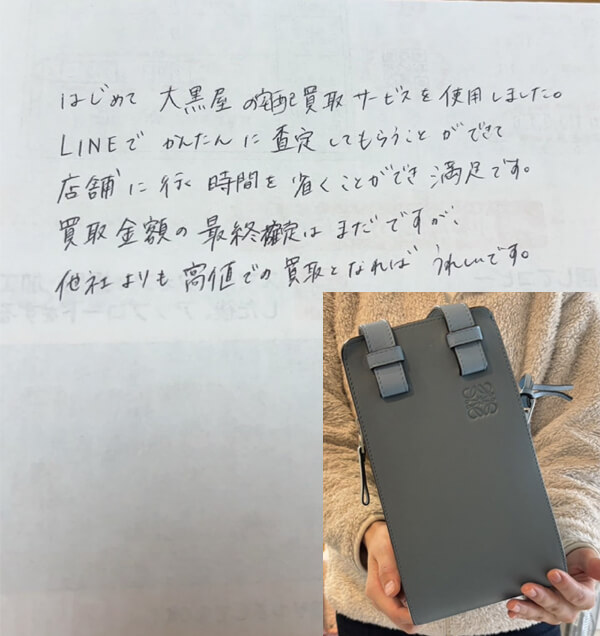 はじめて 大黒屋 の宅配買取サービスを使用しました。
LINEで かんたんに 査定してもらうことができて
店舗に行く 時間を 省くことができ 満足です。
買取金額の最終確定はまだですが、
他社よりも 高値での買取となれば うれしいです。